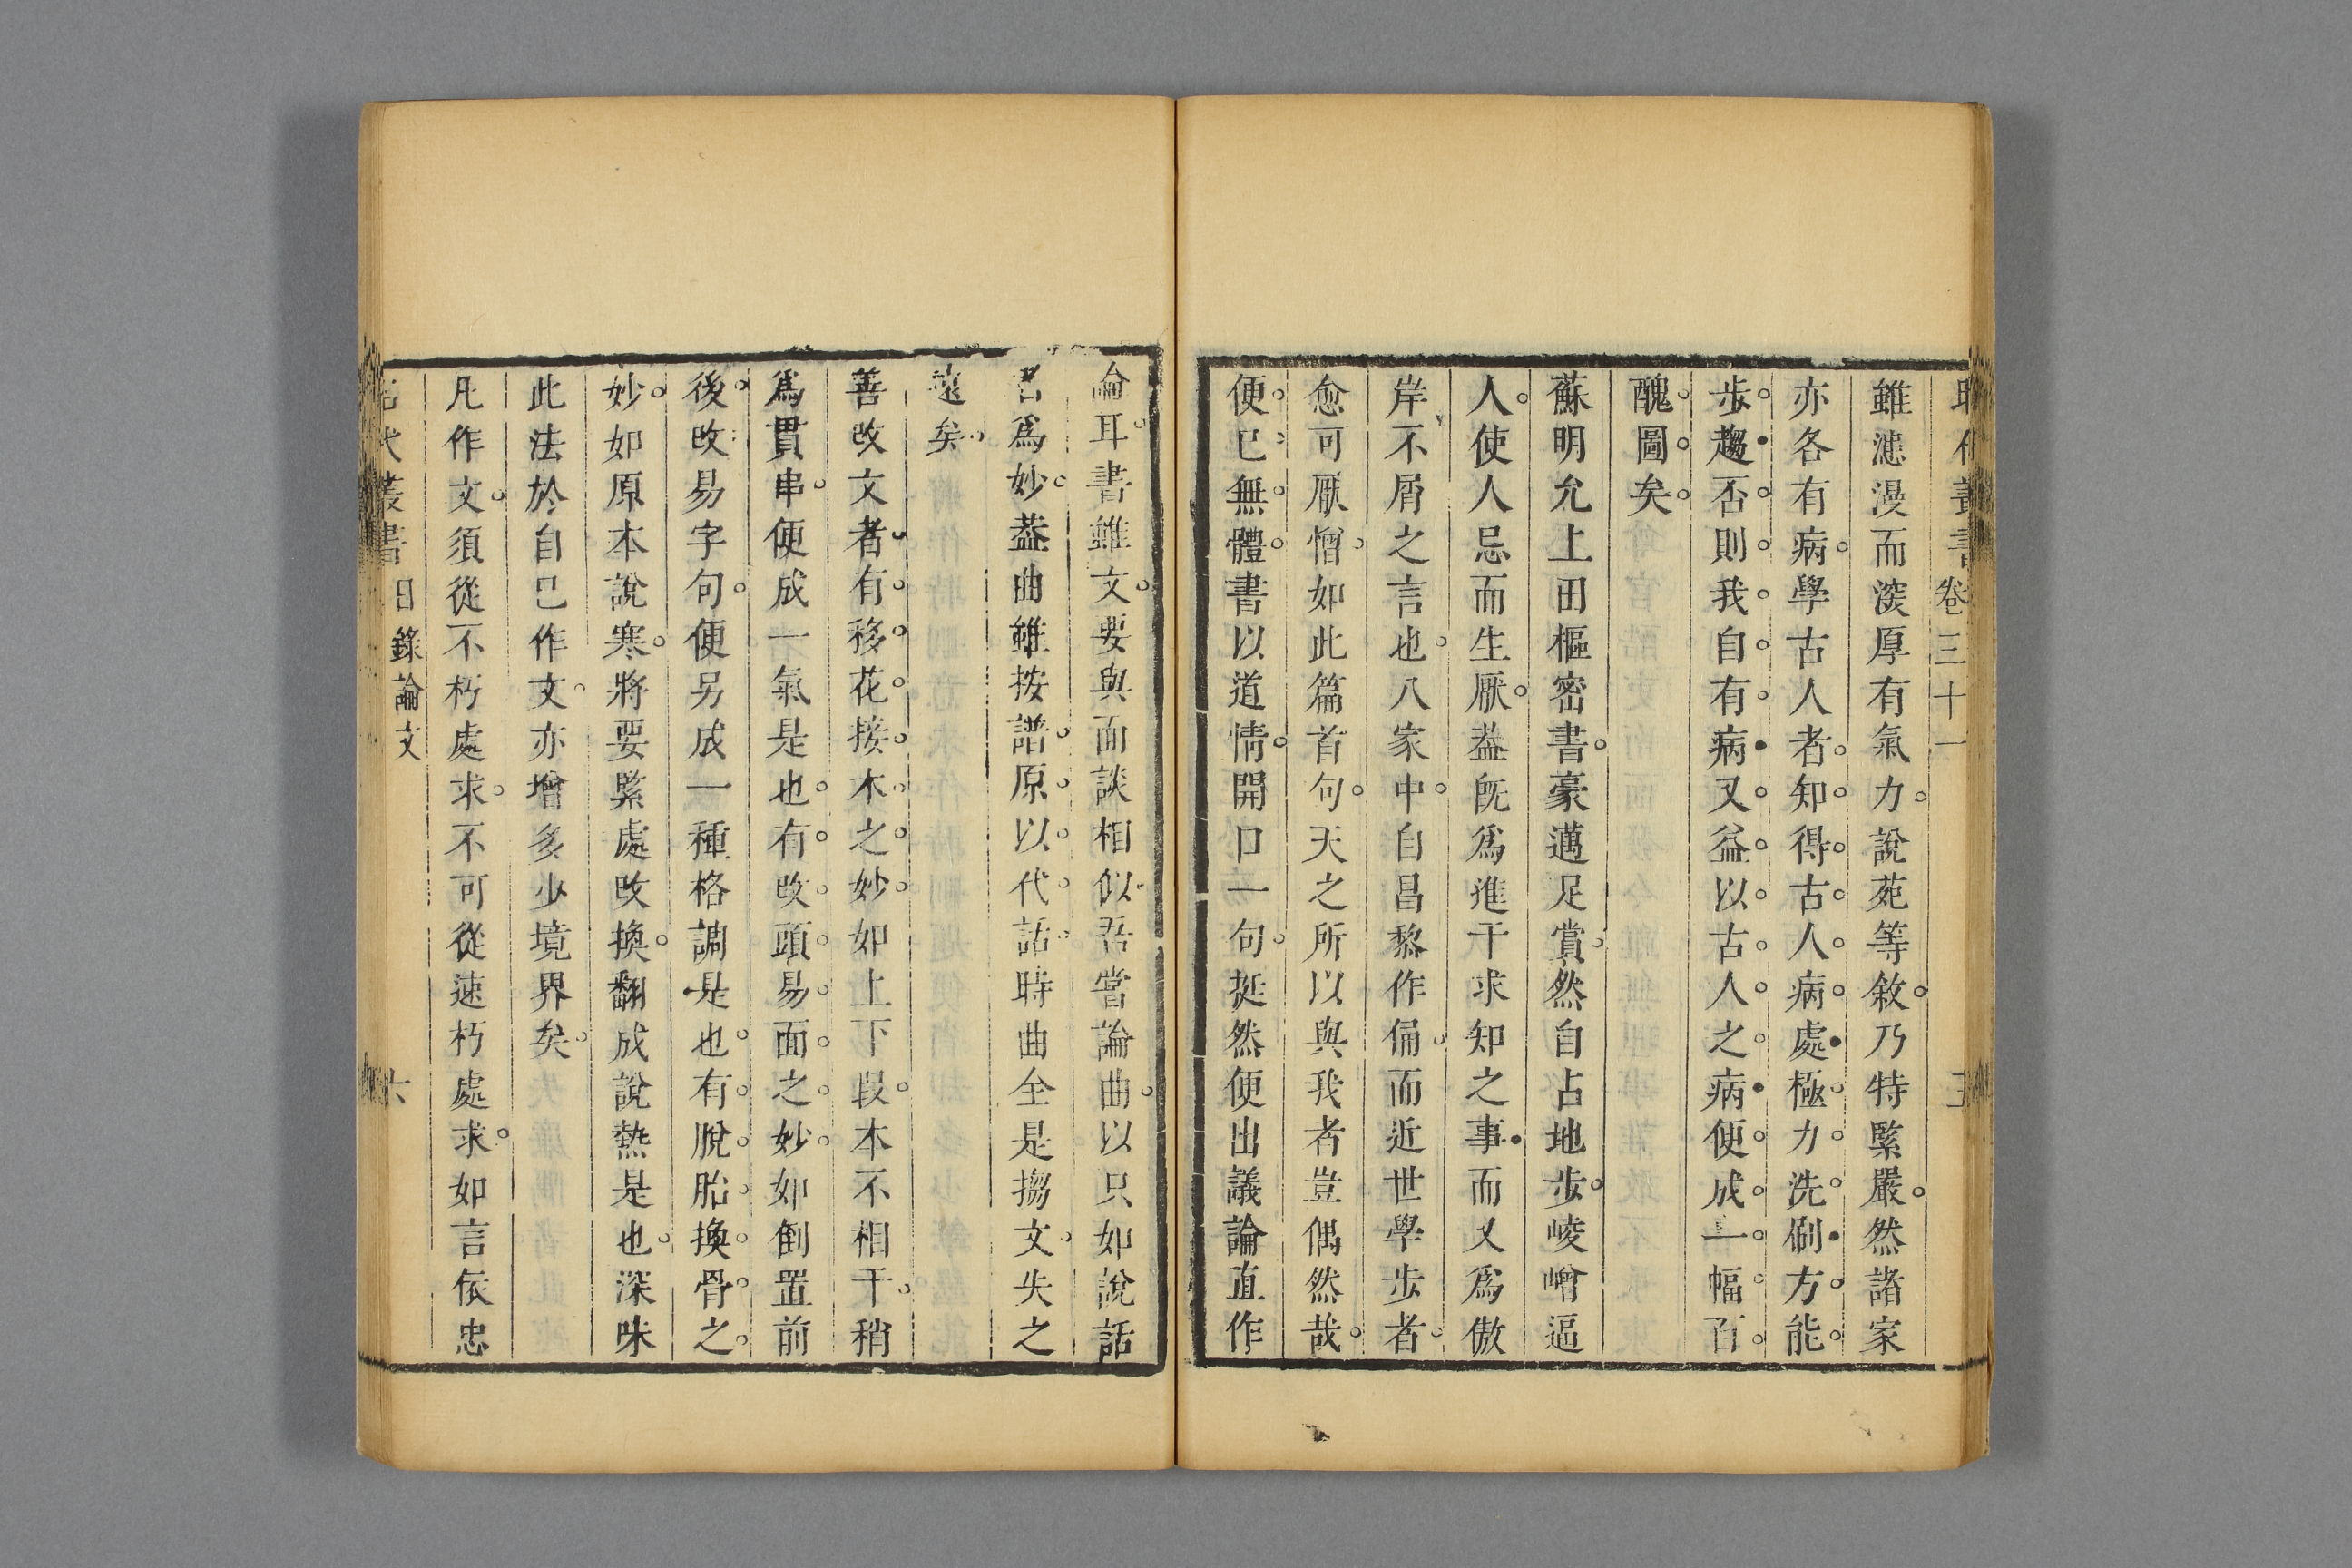 卷三十一
雖漶漫而淡厚有氣力說苑等敘乃特緊嚴然諸家
亦各有病學古人者知得古人病處極力洗刷方能
步趨否則我自有病又益以古人之病便成一幅百
醜圖矣
蘇明允上田樞密書豪邁足賞然自占地步崚嶒逼
人使人忌而生厭葢旣爲進干求知之事而又爲傲
岸不屑之言也八家中自昌黎作俑而近世學步者
愈可厭憎如此篇首句天之所以與我者豈偶然哉
便已無體書以道情開口一句挺然便出議論直作
論耳書雖文要與面談相似吾嘗論曲以只如說話
者爲妙葢曲雖按譜原以代話時曲全是搊文失之
遠矣
善改文者有移花接木之妙如上下段本不相干稍
爲貫串便成一氣是也有改頭易面之妙如倒置前
後改易字句便另成一種格調是也有脫胎換骨之
妙如原本說寒將要緊處改換翻成說熱是也深味
此法於自己作文亦增多少境界矣
凡作文須從不朽處求不可從速朽處求如言依忠
代叢書 日錄論文 六